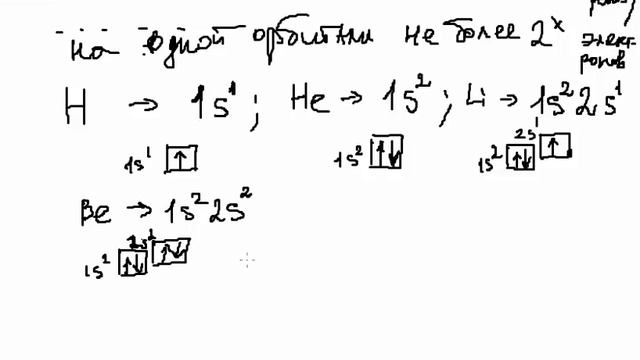 На одной орбитали не более 2х электронов
H → 1s¹; He → 1s²; Li → 1s²2s¹
1s¹ ↑ 1s² ↑↓ 1s² ↑↓ 2s¹ ↑
Be → 1s²2s²
1s² ↑↓ 2s² ↑↓